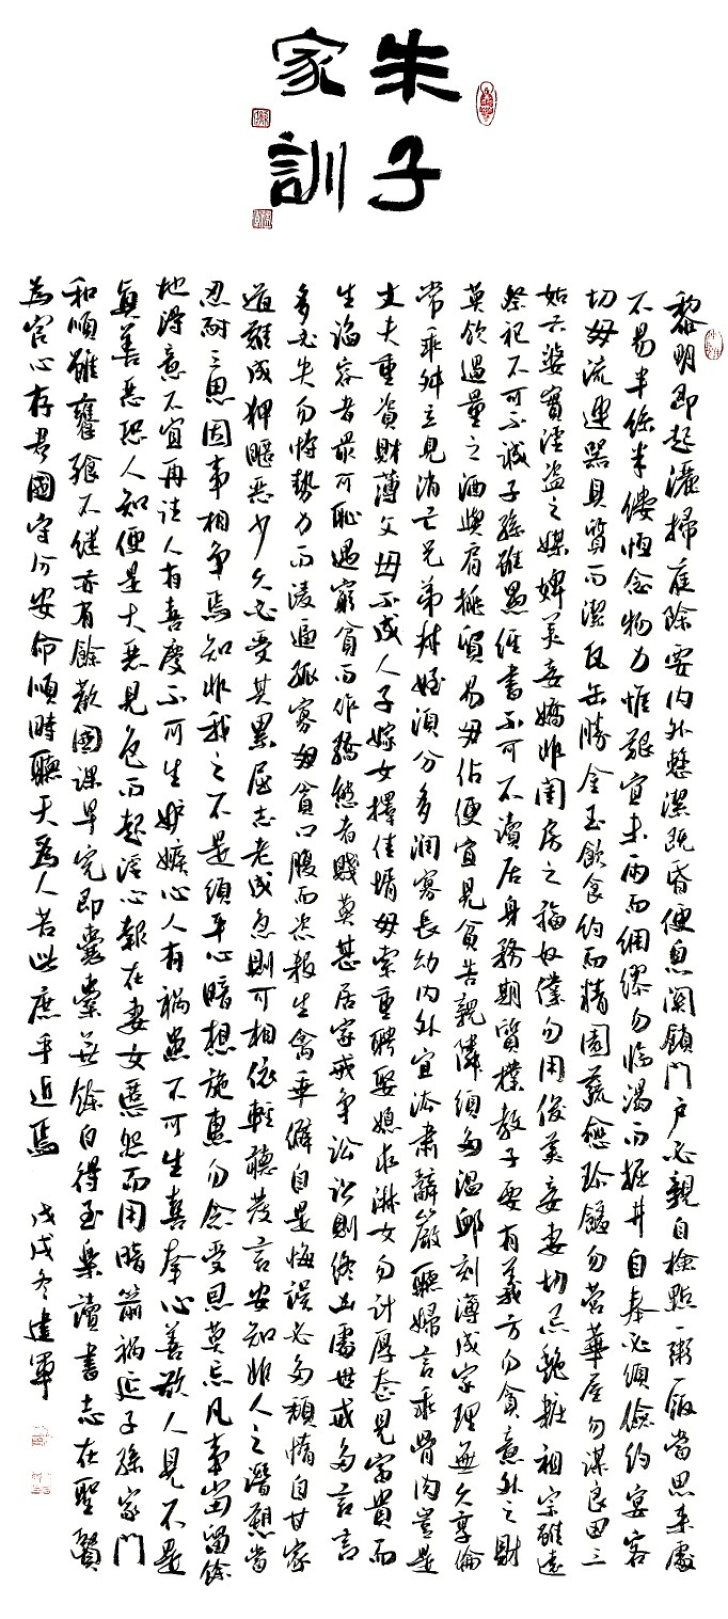 朱子
家訓
黎明即起灑掃庭除要内外整潔既昏便息關鎖門戶必親自檢點一粥一飯當思來處
不易半絲半縷恆念物力惟艱宜未雨而綢繆勿臨渴而掘井自奉必須儉約宴客
切毋流連器具質而潔瓦缶勝金玉飲食約而精園蔬愈珍饈勿營華屋勿謀良田三
姑六婆實淫盜之媒婢美妾嬌非閨房之福奴僕勿用俊美妾妻切忌艷粧祖宗雖遠
祭祀不可不誠子孫雖愚經書不可不讀居身務期質樸教子要有義方勿貪意外之財
莫飲過量之酒與肩挑貿易毋佔便宜見貧苦親鄰須多溫卹刻薄成家理無久享倫
常乖舛立見消亡兄弟叔姪須分多潤寡長幼内外宜法肅辭嚴聽婦言乖骨肉豈是
丈夫重資財薄父母不成人子嫁女擇佳婿毋索重聘娶媳求淑女勿計厚奩見富貴而
生諂容者最可恥遇窮貧而作驕態者賤莫甚居家戒爭訟訟則終凶處世戒多言言
多必失勿恃勢力而凌逼孤寡毋貪口腹而恣殺生禽乖僻自是悔誤必多頹惰自甘家
道難成狎暱惡少久必受其累屈志老成急則可相依輕聽發言安知非人之譖愬當
忍耐三思因事相爭焉知非我之不是須平心暗想施惠勿念受恩莫忘凡事當留餘
地得意不宜再往人有喜慶不可生妒嫉心人有禍患不可生喜幸心善欲人見不是
真善惡恐人知便是大惡見色而起淫心報在妻女匿怨而用暗箭禍延子孫家門
和順雖饔飧不繼亦有餘歡國課早完即囊橐無餘自得至樂讀書志在聖賢
為官心存君國守分安命順時聽天為人若此庶乎近焉 戊戌冬建軍